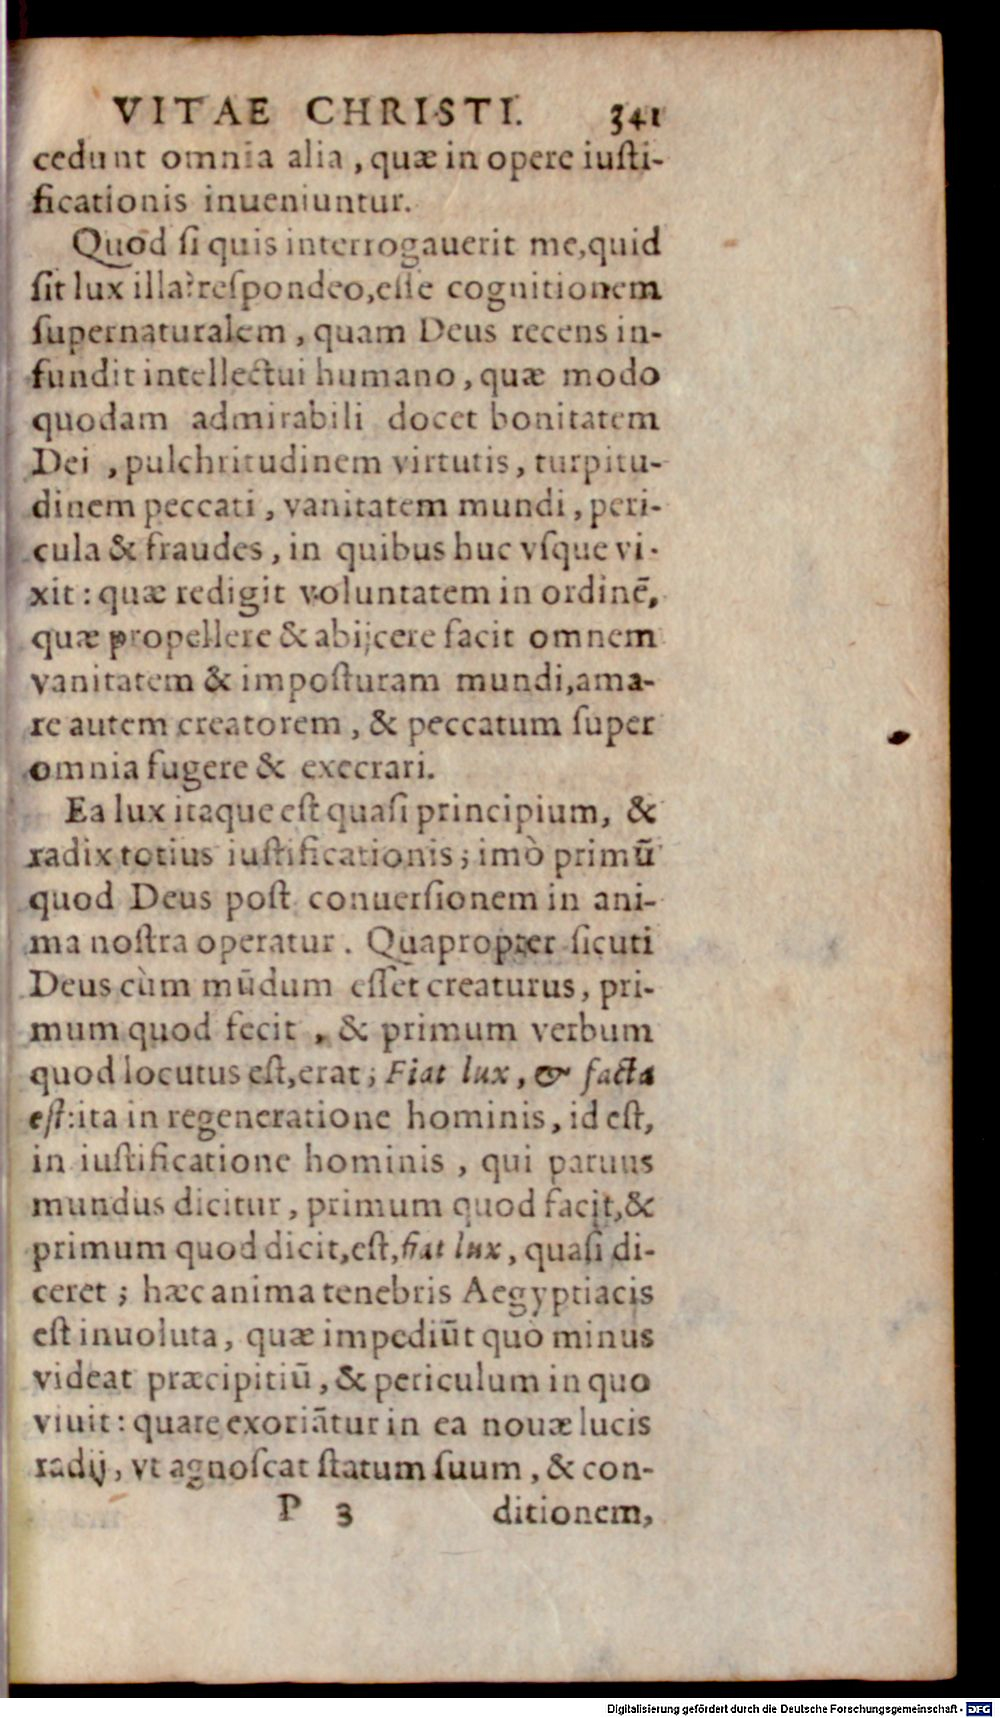 VITAE CHRISTI. 341
cedunt omnia alia, quæ in opere iuſti-
ficationis inueniuntur.
Quod ſi quis interrogauerit me, quid
ſit lux illa? reſpondeo, eſſe cognitionem
ſupernaturalem, quam Deus recens in-
fundit intellectui humano, quæ modo
quodam admirabili docet bonitatem
Dei, pulchritudinem virtutis, turpitu-
dinem peccati, vanitatem mundi, peri-
cula & fraudes, in quibus huc vſque vi-
xit: quæ redigit voluntatem in ordinē,
quæ propellere & abijcere facit omnem
vanitatem & impoſturam mundi, ama-
re autem creatorem, & peccatum ſuper
omnia fugere & execrari.
Ea lux itaque eſt quaſi principium, &
radix totius iuſtificationis; imò primū
quod Deus poſt conuerſionem in ani-
ma noſtra operatur. Quapropter ſicuti
Deus cùm mūdum eſſet creaturus, pri-
mum quod fecit, & primum verbum
quod locutus eſt, erat; Fiat lux, & facta
eſt: ita in regeneratione hominis, id eſt,
in iuſtificatione hominis, qui paruus
mundus dicitur, primum quod facit, &
primum quod dicit, eſt, fiat lux, quaſi di-
ceret; hæc anima tenebris Aegyptiacis
eſt inuoluta, quæ impediūt quò minus
videat præcipitiū, & periculum in quo
viuit: quare exoriātur in ea nouæ lucis
radij, vt agnoſcat ſtatum ſuum, & con-
P 3 ditionem,
Digitalisierung gefördert durch die Deutsche Forschungsgemeinschaft - DFG